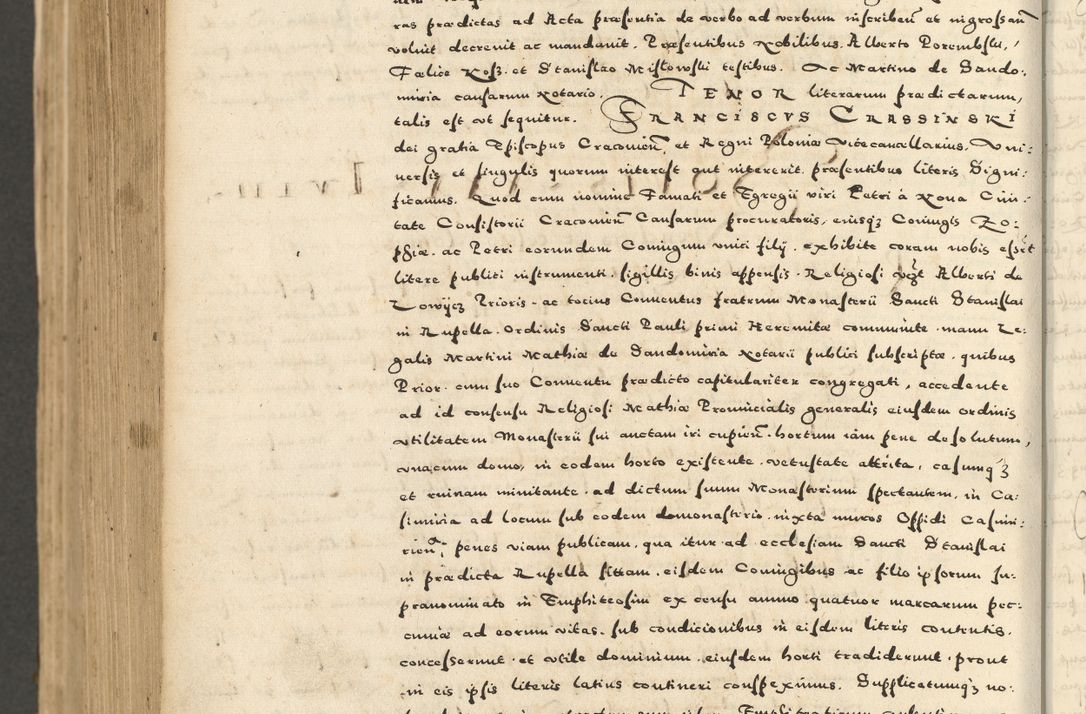 ras prædictas ad Acta præsentia de verbo ad verbum inscribeñ et ingrossañ
voluit decrevit ac mandauit. Præsentibus Nobilibus Alberto Porembski,
Fælice Kosz. et Stanislao Mislowski testibus. Ac Martino de Sando:
miria causarum Notario. TENOR literarum prædictarum,
talis est vt sequitur. FRANCISCVS CRASSINSKI
dei gratia Episcopus Cracouieñ, et Regni Poloniæ Vicecancellarius. Vni:
uersis et singulis quorum interest aut intererit præsentibus literis Signi:
ficamus. Quod cum nomine Famati et Egregii viri Petri à Noua Ciui:
tate Consistorii Cracouieñ Causarum procuratoris, eiusqz Coniugis Zo:
phiæ. ac Petri eorundem Coniugum vnici filij. exhibite coram nobis esset
litere publici instrumenti. sigillis binis appensis. Religiosi Alberti de
Lowijcz Prioris. ac tocius Conuentus fratrum Monasterii Sancti Stanislai
in Rupella. Ordinis Sancti Pauli primi Heremitæ communite. manu Le:
galis Martini Mathiæ de Sandomiria Notarii publici subscriptæ. quibus
Prior. cum suo Conuentu prædicto capitulariter congregati, accedente
ad id consensu Religiosi Mathiæ Prouincialis generalis eiusdem ordinis
vtilitatem Monasterii sui auctam iri cupieñ. hortum iam pene desolutum,
vnacum domo, in eodem horto existente. vetustate attrita, casumqz
et ruinam minitante. ad dictum suum Monasterium spectantem, in Ca:
simiria ad locum sub eodem monasterio. iuxta muros Oppidi Casimi:
rieñ, penes viam publicam. qua itur ad ecclesiam Sancti Stanislai
in prædicta Rupella sittam. eisdem Coniugibus ac filio ipsorum su:
pranominato in Emphiteosim ex censu annuo quatuor marcarum pec:
cuniæ ad eorum vitas. sub condicionibus in eisdem literis contentis.
concesserunt. et vtile dominium. eiusdem horti tradiderunt. prout
in eis ipsis literis latius contineri conspeximus. Supplicatumqz no: